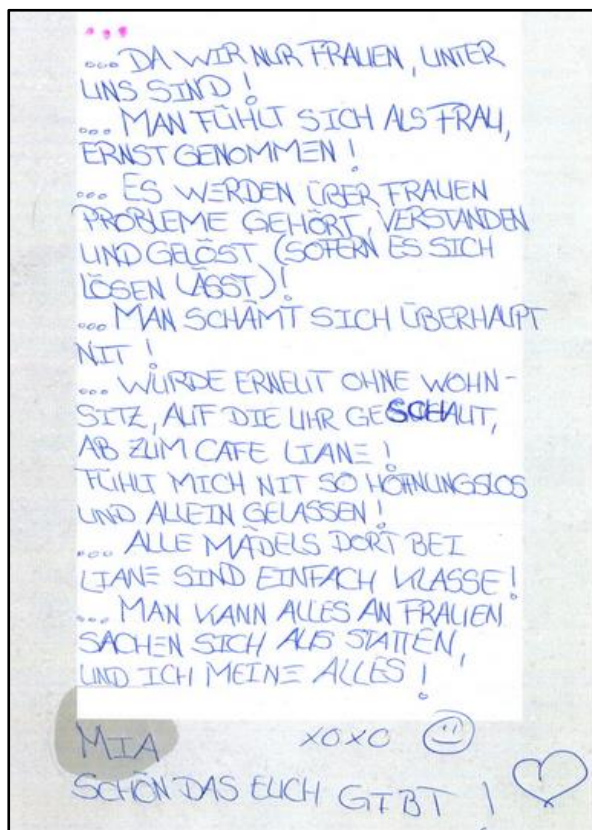 ...
... DA WIR NUR FRAUEN, UNTER
UNS SIND !
... MAN FÜHLT SICH ALS FRAU,
ERNST GENOMMEN !
... ES WERDEN ÜBER FRAUEN
PROBLEME GEHÖRT, VERSTANDEN
UND GELÖST (SOFERN ES SICH
LÖSEN LÄSST)!
... MAN SCHÄMT SICH ÜBERHAUPT
NIT !
... WURDE ERNEUT OHNE WOHN-
SITZ, AUF DIE UHR GESCHAUT,
AB ZUM CAFE LIANE !
FÜHLT MICH NIT SO HOFNUNGSLOS
UND ALLEIN GELASSEN !
... ALLE MÄDELS DORT BEI
LIANE SIND EINFACH KLASSE !
... MAN KANN ALLES AN FRAUEN
SACHEN SICH AUS STATTEN,
UND ICH MEINE ALLES !
MIA XOXO
SCHÖN DAS EUCH GIBT !